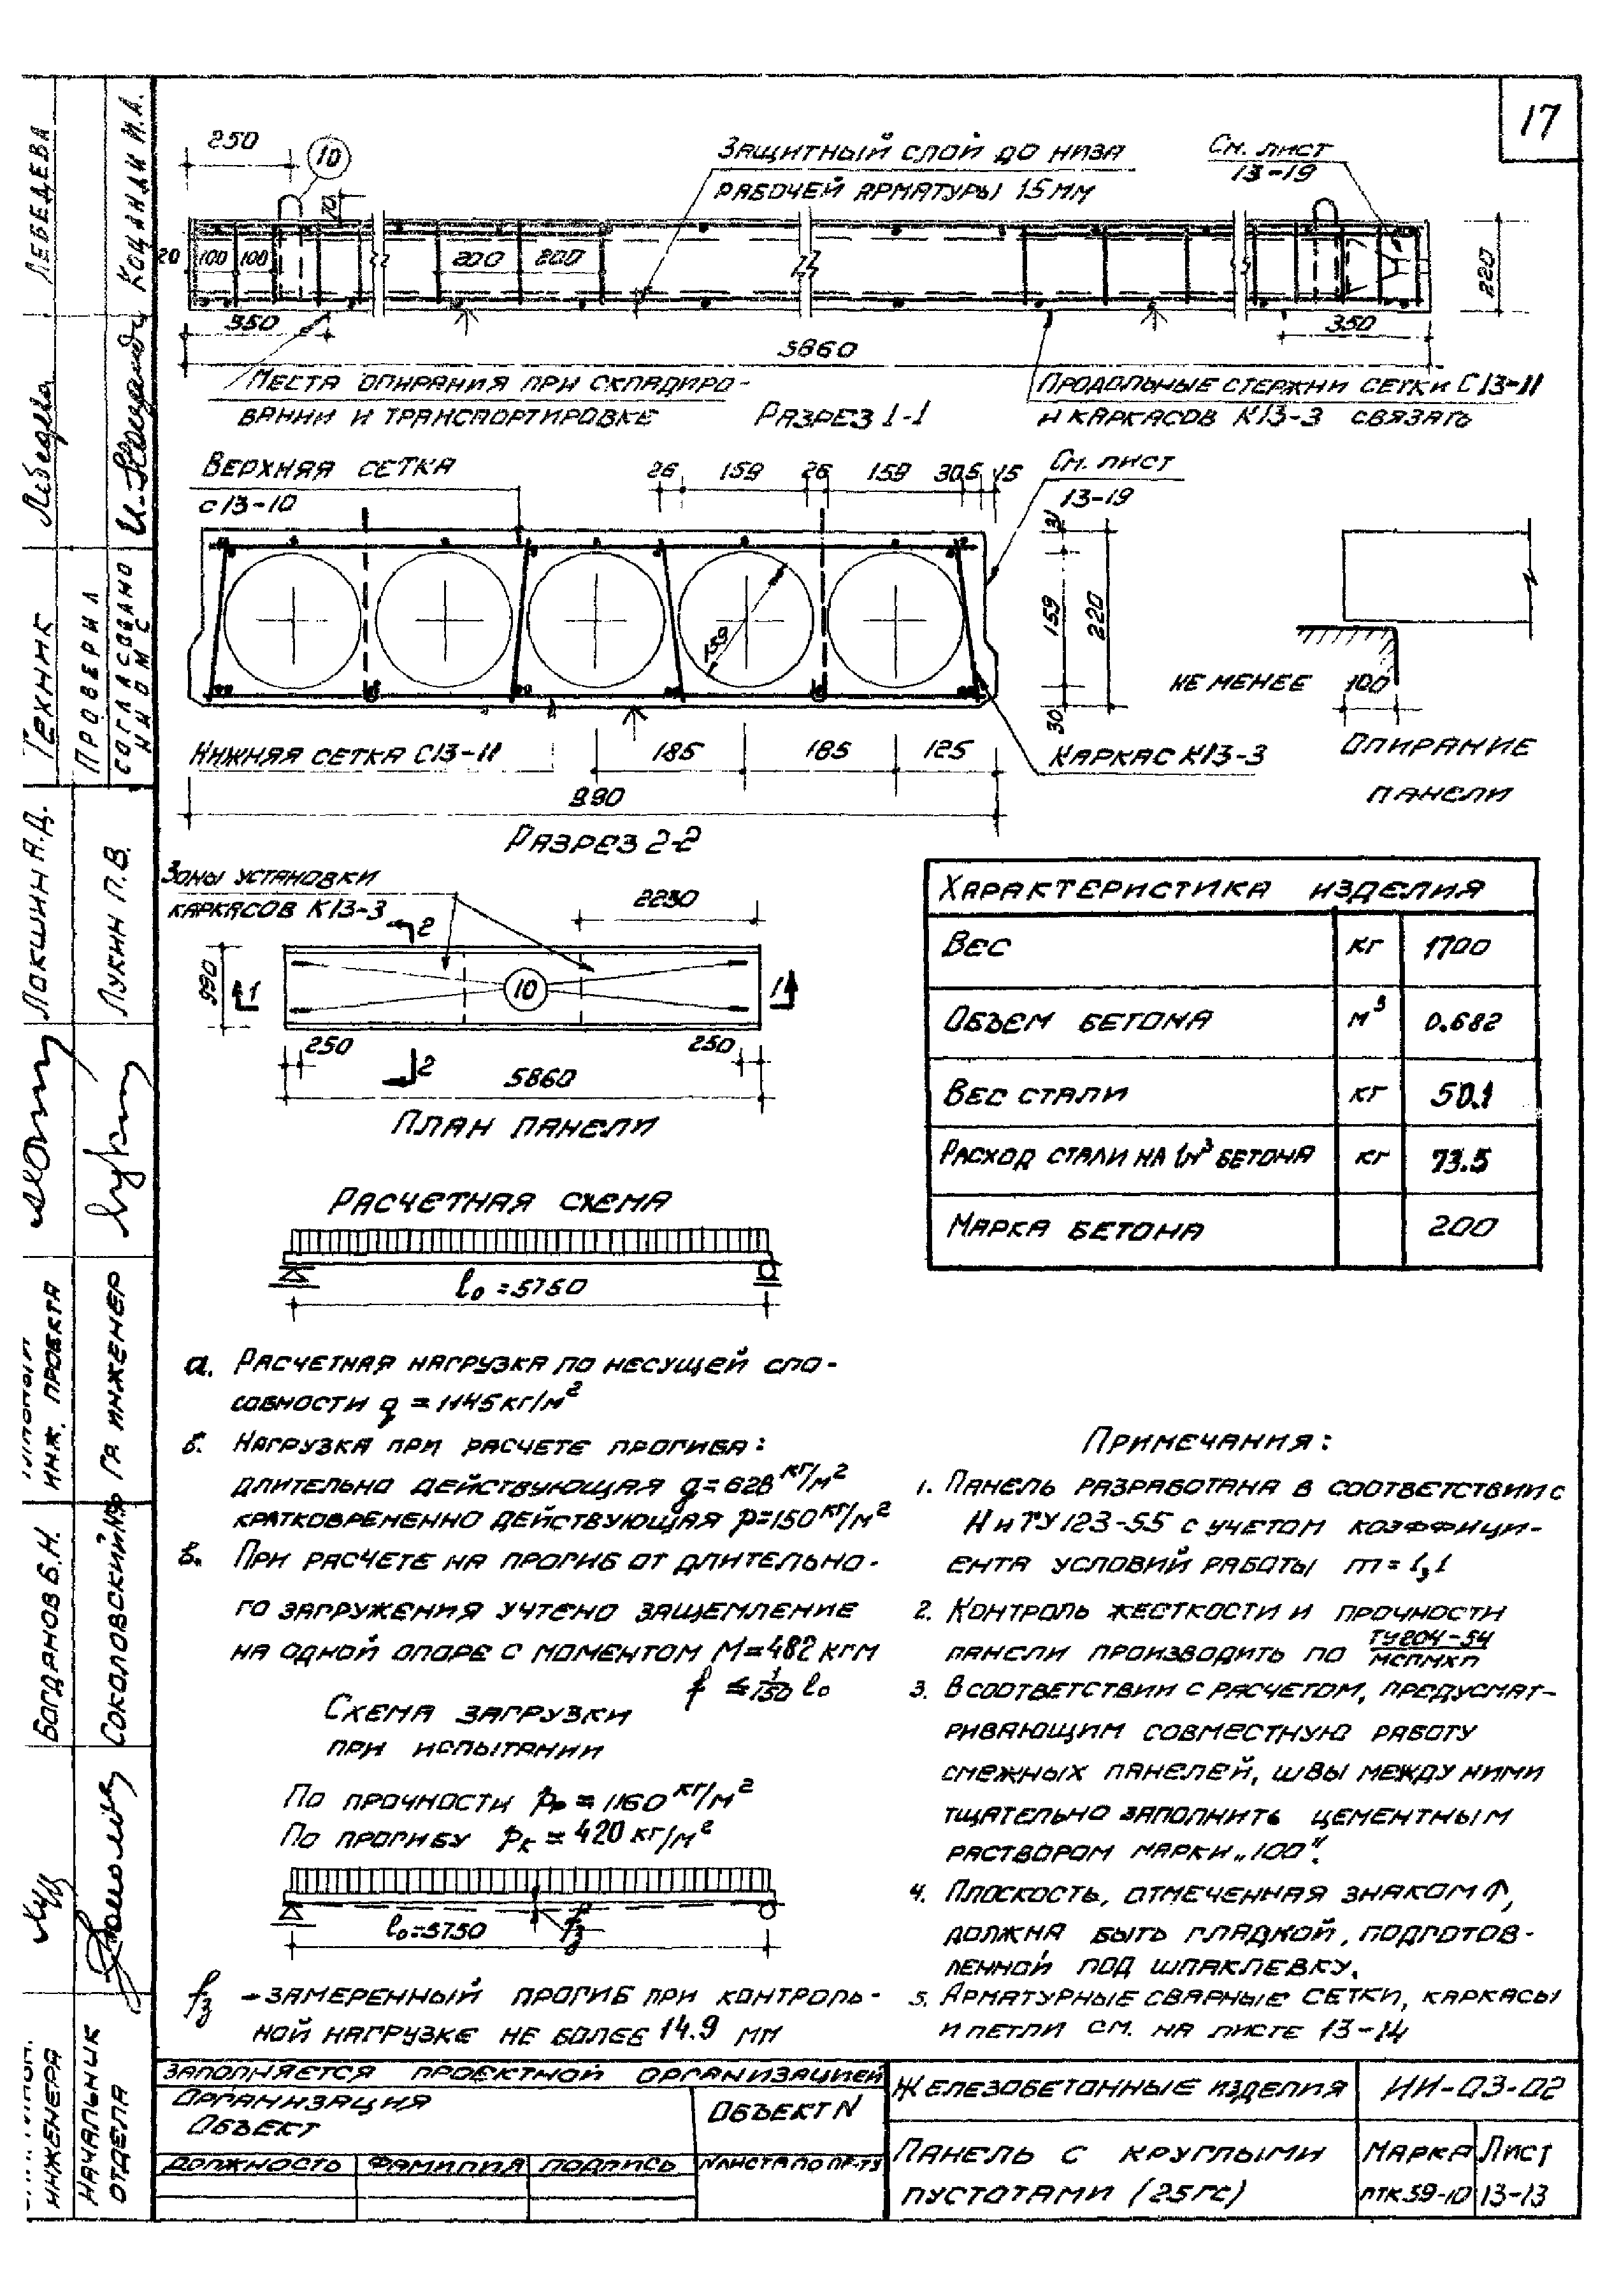 17
250
10
Защитный слой до низа
рабочей арматуры 15 мм
См. лист
13-19
70
20
100
100
200
200
220
350
350
5860
Места опирания при складиро-
вании и транспортировке
Разрез 1-1
Продольные стержни сетки С13-11
и каркасов К13-3 связать
Верхняя сетка
С13-10
26
159
26
159
30.5
15
См. лист
13-19
31
159
220
30
159
не менее 100
Опирание
панели
Нижняя сетка С13-11
185
185
125
Каркас К13-3
990
Разрез 2-2
Зоны установки
каркасов К13-3
2230
2
990
1
10
1
250
250
2
5860
План панели
Характеристика изделия
Вес кг 1700
Объем бетона м³ 0.682
Вес стали кг 50.1
Расход стали на 1м³ бетона кг 73.5
Марка бетона 200
Расчетная схема
l₀ = 5750
а. Расчетная нагрузка по несущей спо-
собности q = 1145 кг/м²
б. Нагрузка при расчете прогиба:
длительно действующая g = 628 кг/м²
кратковременно действующая p = 150 кг/м²
в. При расчете на прогиб от длительно-
го загружения учтено защемление
на одной опоре с моментом М = 482 кгм
f ≤ 1/150 l₀
Схема загрузки
при испытании
По прочности pр = 1160 кг/м²
По прогибу pк = 420 кг/м²
l₀ = 5750
fз
fз - замеренный прогиб при контроль-
ной нагрузке не более 14.9 мм
Примечания:
1. Панель разработана в соответствии с
НиТУ 123-55 с учетом коэффици-
ента условий работы m = 1,1
2. Контроль жесткости и прочности
панели производить по ТУ 204-54
МСПМХП
3. В соответствии с расчетом, предусмат-
ривающим совместную работу
смежных панелей, швы между ними
тщательно заполнить цементным
раствором марки „100“.
4. Плоскость, отмеченная знаком ↑,
должна быть гладкой, подготов-
ленной под шпаклевку.
5. Арматурные сварные сетки, каркасы
и петли см. на листе 13-14
Заполняется проектной организацией
Организация
Объект
Объект N
Должность
Фамилия
Подпись
Железобетонные изделия
ИИ-03-02
Панель с круглыми
пустотами (25гс)
Марка
ПТК 59-10
Лист
13-13
Техник
Лебедева
Проверил
Согласовано
НИОМС
Локшин А.Д.
Лукин П.В.
инж. проекта
Гл инженер
Богданов Б.Н.
Соколовский
инженера
Начальник
отдела